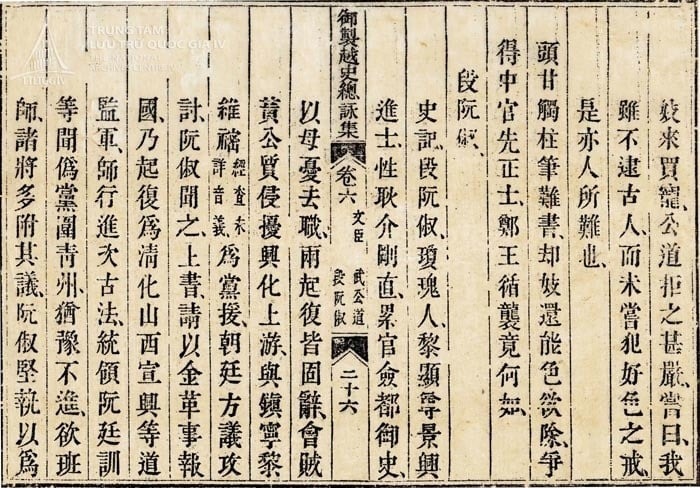 妓來買寵公道拒之甚嚴嘗曰我
雖不逮古人而未嘗犯好色之戒
是亦人所難也
頭甘觸柱筆難書却妓還能色欲除爭
得中官先正士鄭王循襲竟何如
段阮俶
史記段阮俶瓊瑰人黎顯尊景興
進士性耿介剛直累官僉都御史
御製越史總詠集
卷六
文臣
武公道
段阮俶
二十六
以母憂去職兩起復皆固辭會賊
黃公質侵擾興化上游與鎮寧黎
維禶
經查未
詳音義
為黨援朝廷方議攻
討阮俶聞之上書請以金革事報
國乃起復為清化山西宣興等道
監軍師行進次古法統領阮廷訓
等聞僞黨圍青州猶豫不進欲班
師諸將多附其議阮俶堅執以為
TRUNG TÂM
LƯU TRỮ QUỐC GIA IV
TTLTQG IV